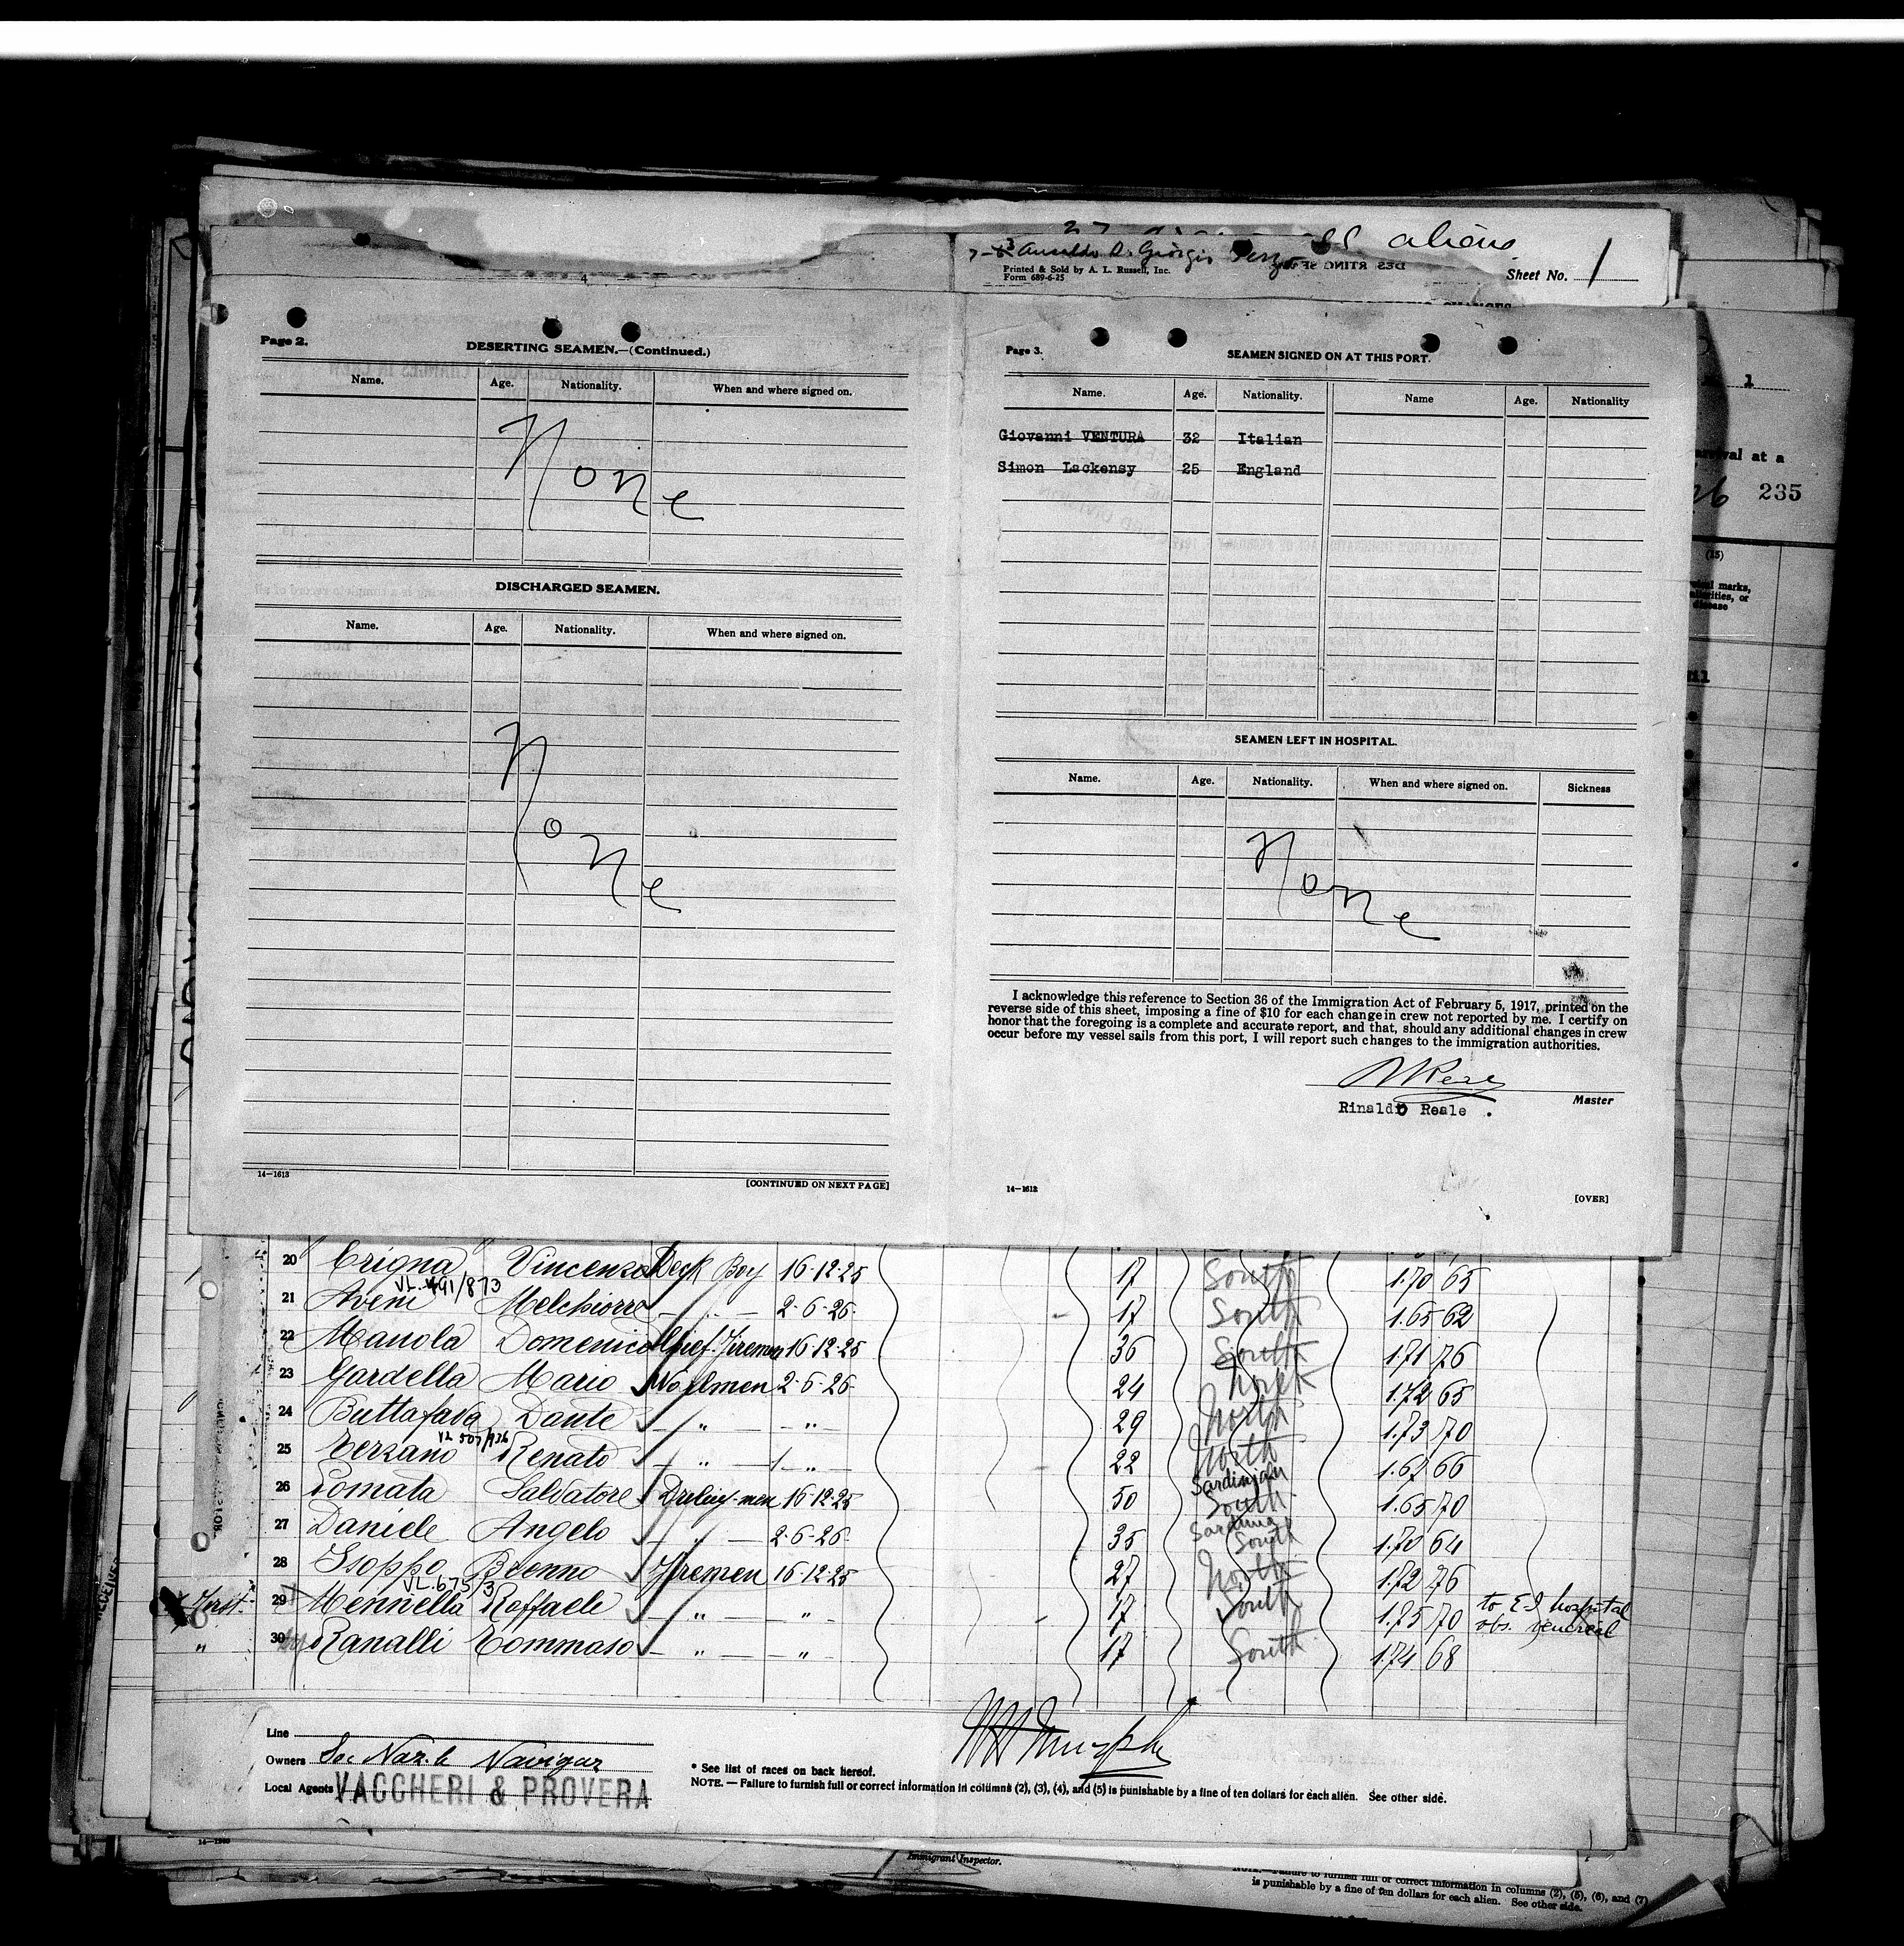 aliens
Printed & Sold by A. L. Russell, Inc.
Form 689-6-25
Sheet No. 1
Page 2.
DESERTING SEAMEN.—(Continued.)
Name. Age. Nationality. When and where signed on.
None
DISCHARGED SEAMEN.
Name. Age. Nationality. When and where signed on.
None
14—1613
[CONTINUED ON NEXT PAGE]
Page 3.
SEAMEN SIGNED ON AT THIS PORT.
Name. Age. Nationality. Name Age. Nationality
Giovanni VENTURA 32 Italian
Simon Lackensy 25 England
SEAMEN LEFT IN HOSPITAL.
Name. Age. Nationality. When and where signed on. Sickness
None
I acknowledge this reference to Section 36 of the Immigration Act of February 5, 1917, printed on the
reverse side of this sheet, imposing a fine of $10 for each change in crew not reported by me. I certify on
honor that the foregoing is a complete and accurate report, and that, should any additional changes in crew
occur before my vessel sails from this port, I will report such changes to the immigration authorities.
Master
Rinaldo Reale .
14—1613
[OVER]
1
arrival at a
235
(15)
marks,
disease
20 Crigna Vincenzo Deck Boy 16-12-25 17 South 1.70 65
VL. 491/873
21 Aveni Melchiorre — " — 2-6-26 17 South 1.65 62
22 Manola Domenico Chief Firemen 16-12-25 36 South 1.71 76
23 Gardella Mario 2-6-26 24 North 1.72 65
24 Buttafava Dante — " — — " — 29 North 1.73 70
VL 507/936
25 Terzano Renato — " — — " — 22 North 1.67 66
Sardinian
26 Pomata Salvatore 16-12-25 50 South 1.65 70
27 Daniele Angelo — " — 2-6-26 35 South 1.70 64
28 Isoppo Brenno Firemen 16-12-25 27 North 1.72 76
VL. 675/3
First 29 Mennella Raffaele — " — " 17 South 1.75 70 to E I hospital
obs. venereal
" 30 Ranalli Tommaso — " — " 17 South 1.74 68
Line
Owners Soc Naz. le Navigaz
Local Agents VACCHERI & PROVERA
* See list of races on back hereof.
NOTE. — Failure to furnish full or correct information in columns (2), (3), (4), and (5) is punishable by a fine of ten dollars for each alien. See other side.
Immigrant Inspector.
NOTE.—Failure to furnish full or correct information in columns (2), (5), (6), and (7)
is punishable by a fine of ten dollars for each alien. See other side.